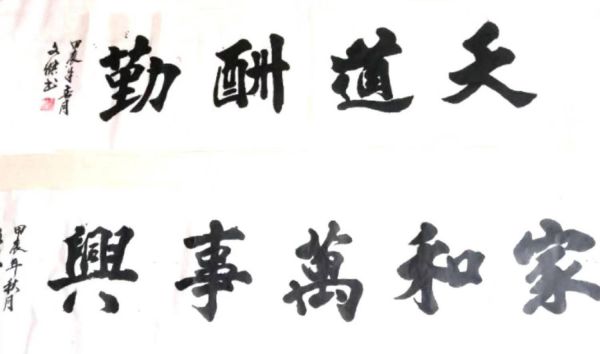 天道酬勤
甲辰年正月
文傑书
家和萬事興
甲辰年秋月